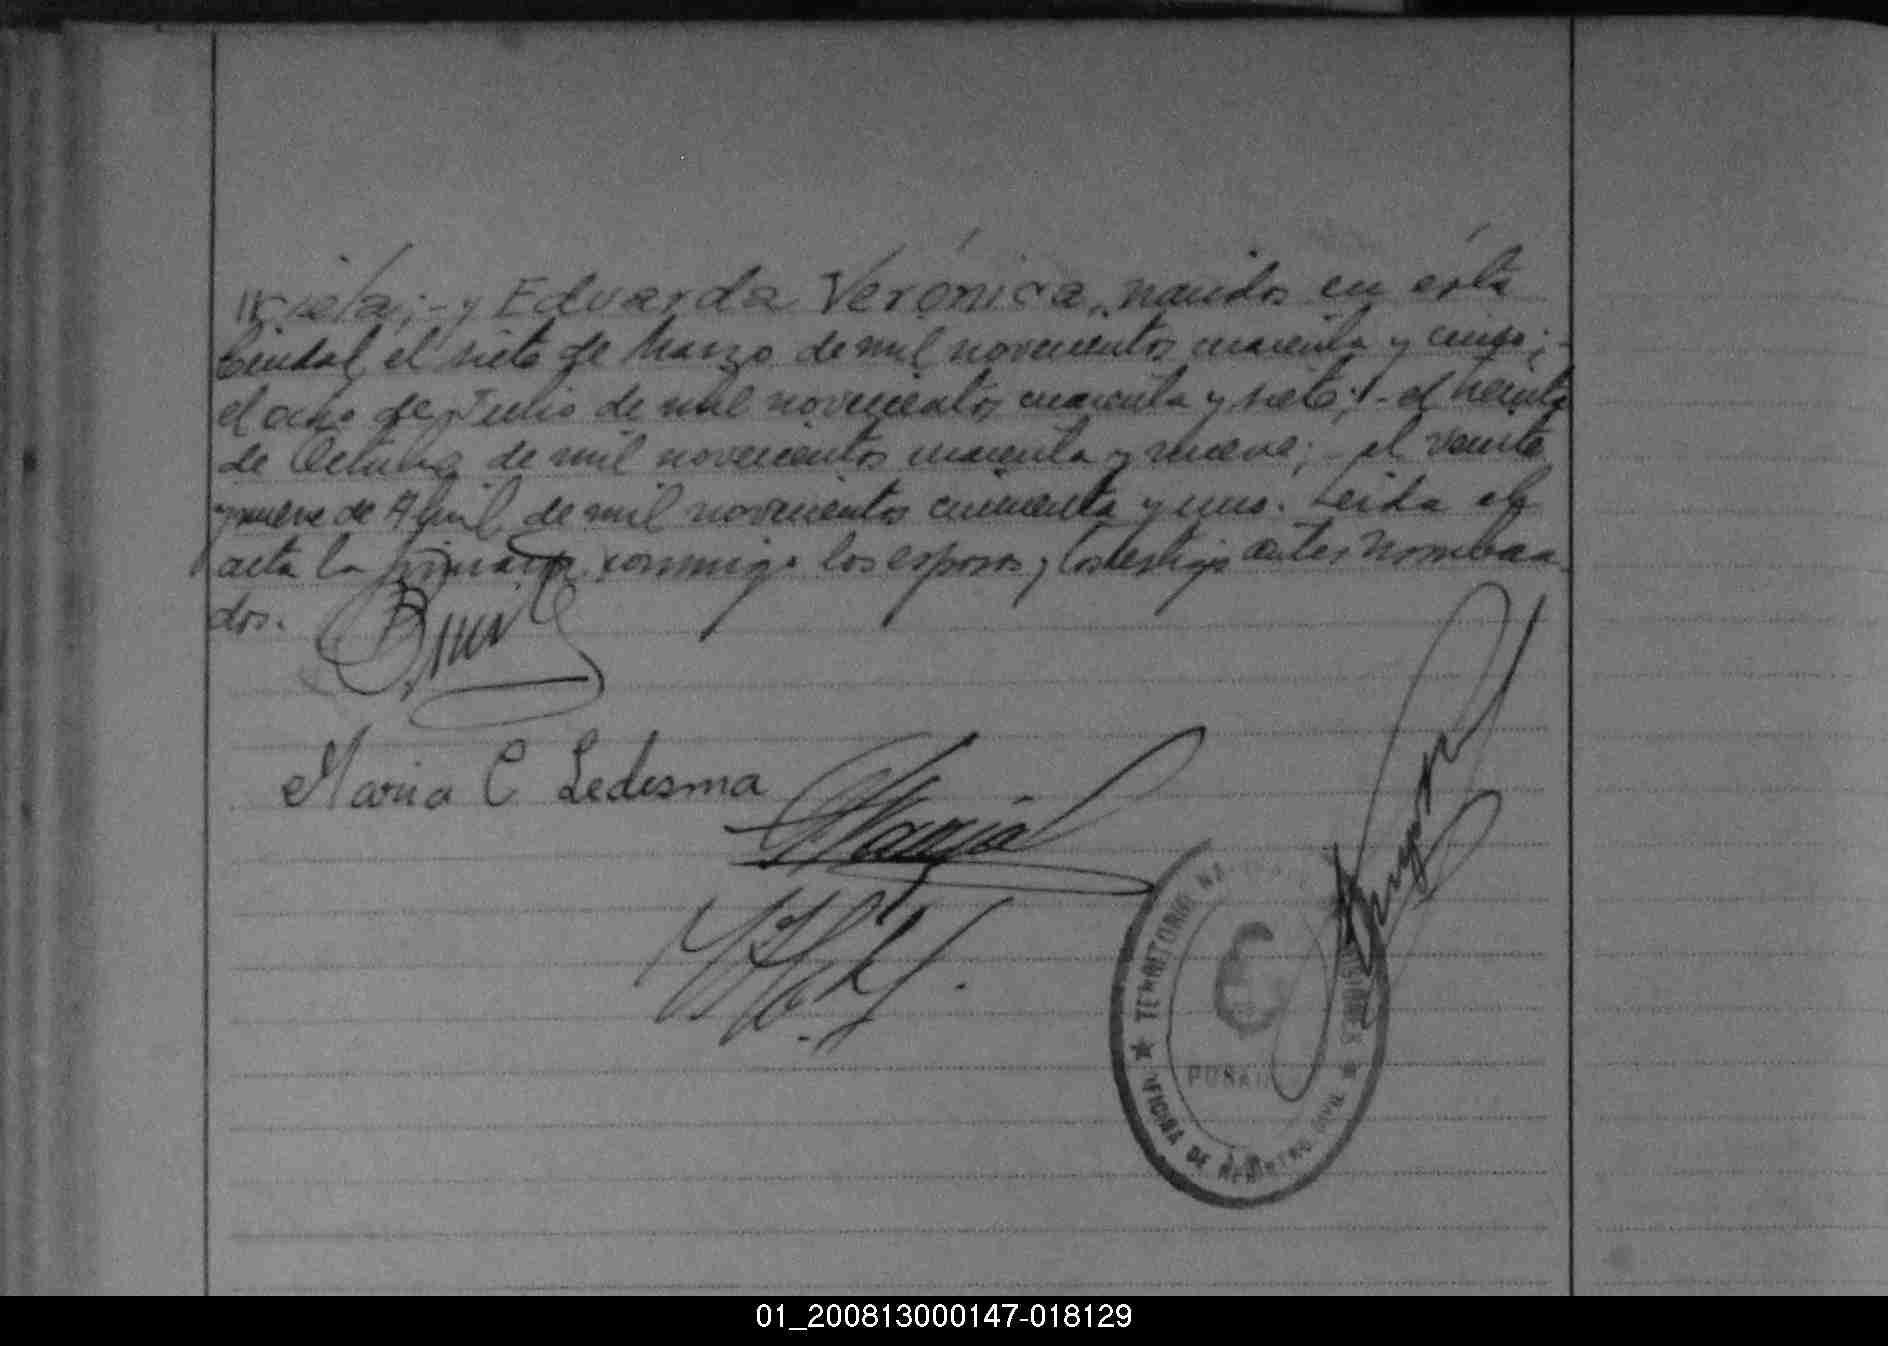 y Eduarda Verónica, nacidos en ésta
Ciudad, el siete de Marzo de mil novecientos cuarenta y cinco;-
el ocho de Julio de mil novecientos cuarenta y siete;- el treinta
de Octubre de mil novecientos cuarenta y nueve;- el veinte
y nueve de Abril de mil novecientos cincuenta y uno. Leida el
acta la firmaron conmigo los esposos, y los testigos antes nombra
dos.
Maria C Ledesma
★ TERRITORIO MISIONES ★
OFICINA DE REGISTRO CIVIL
01_200813000147-018129